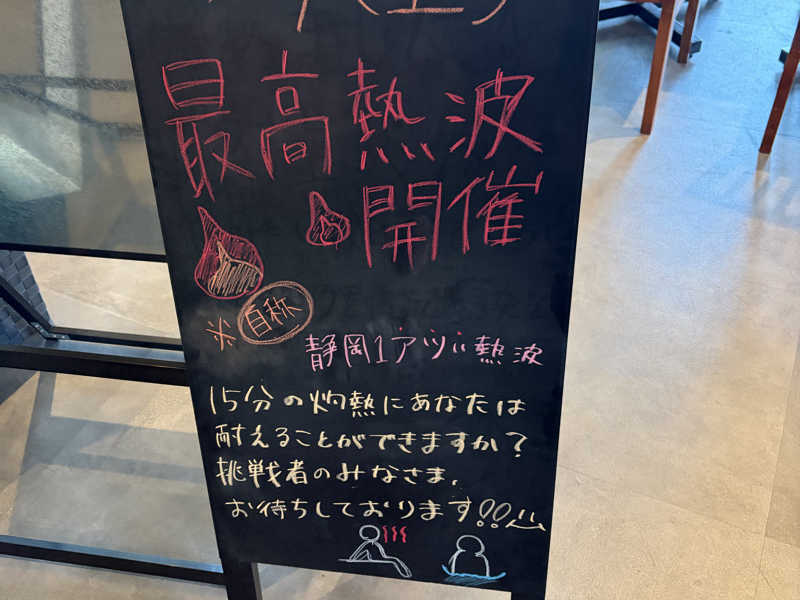 (土)
最高熱波
開催
※自称
静岡1アツい熱波
15分の灼熱にあなたは
耐えることができますか？
挑戦者のみなさま、
お待ちしております!!